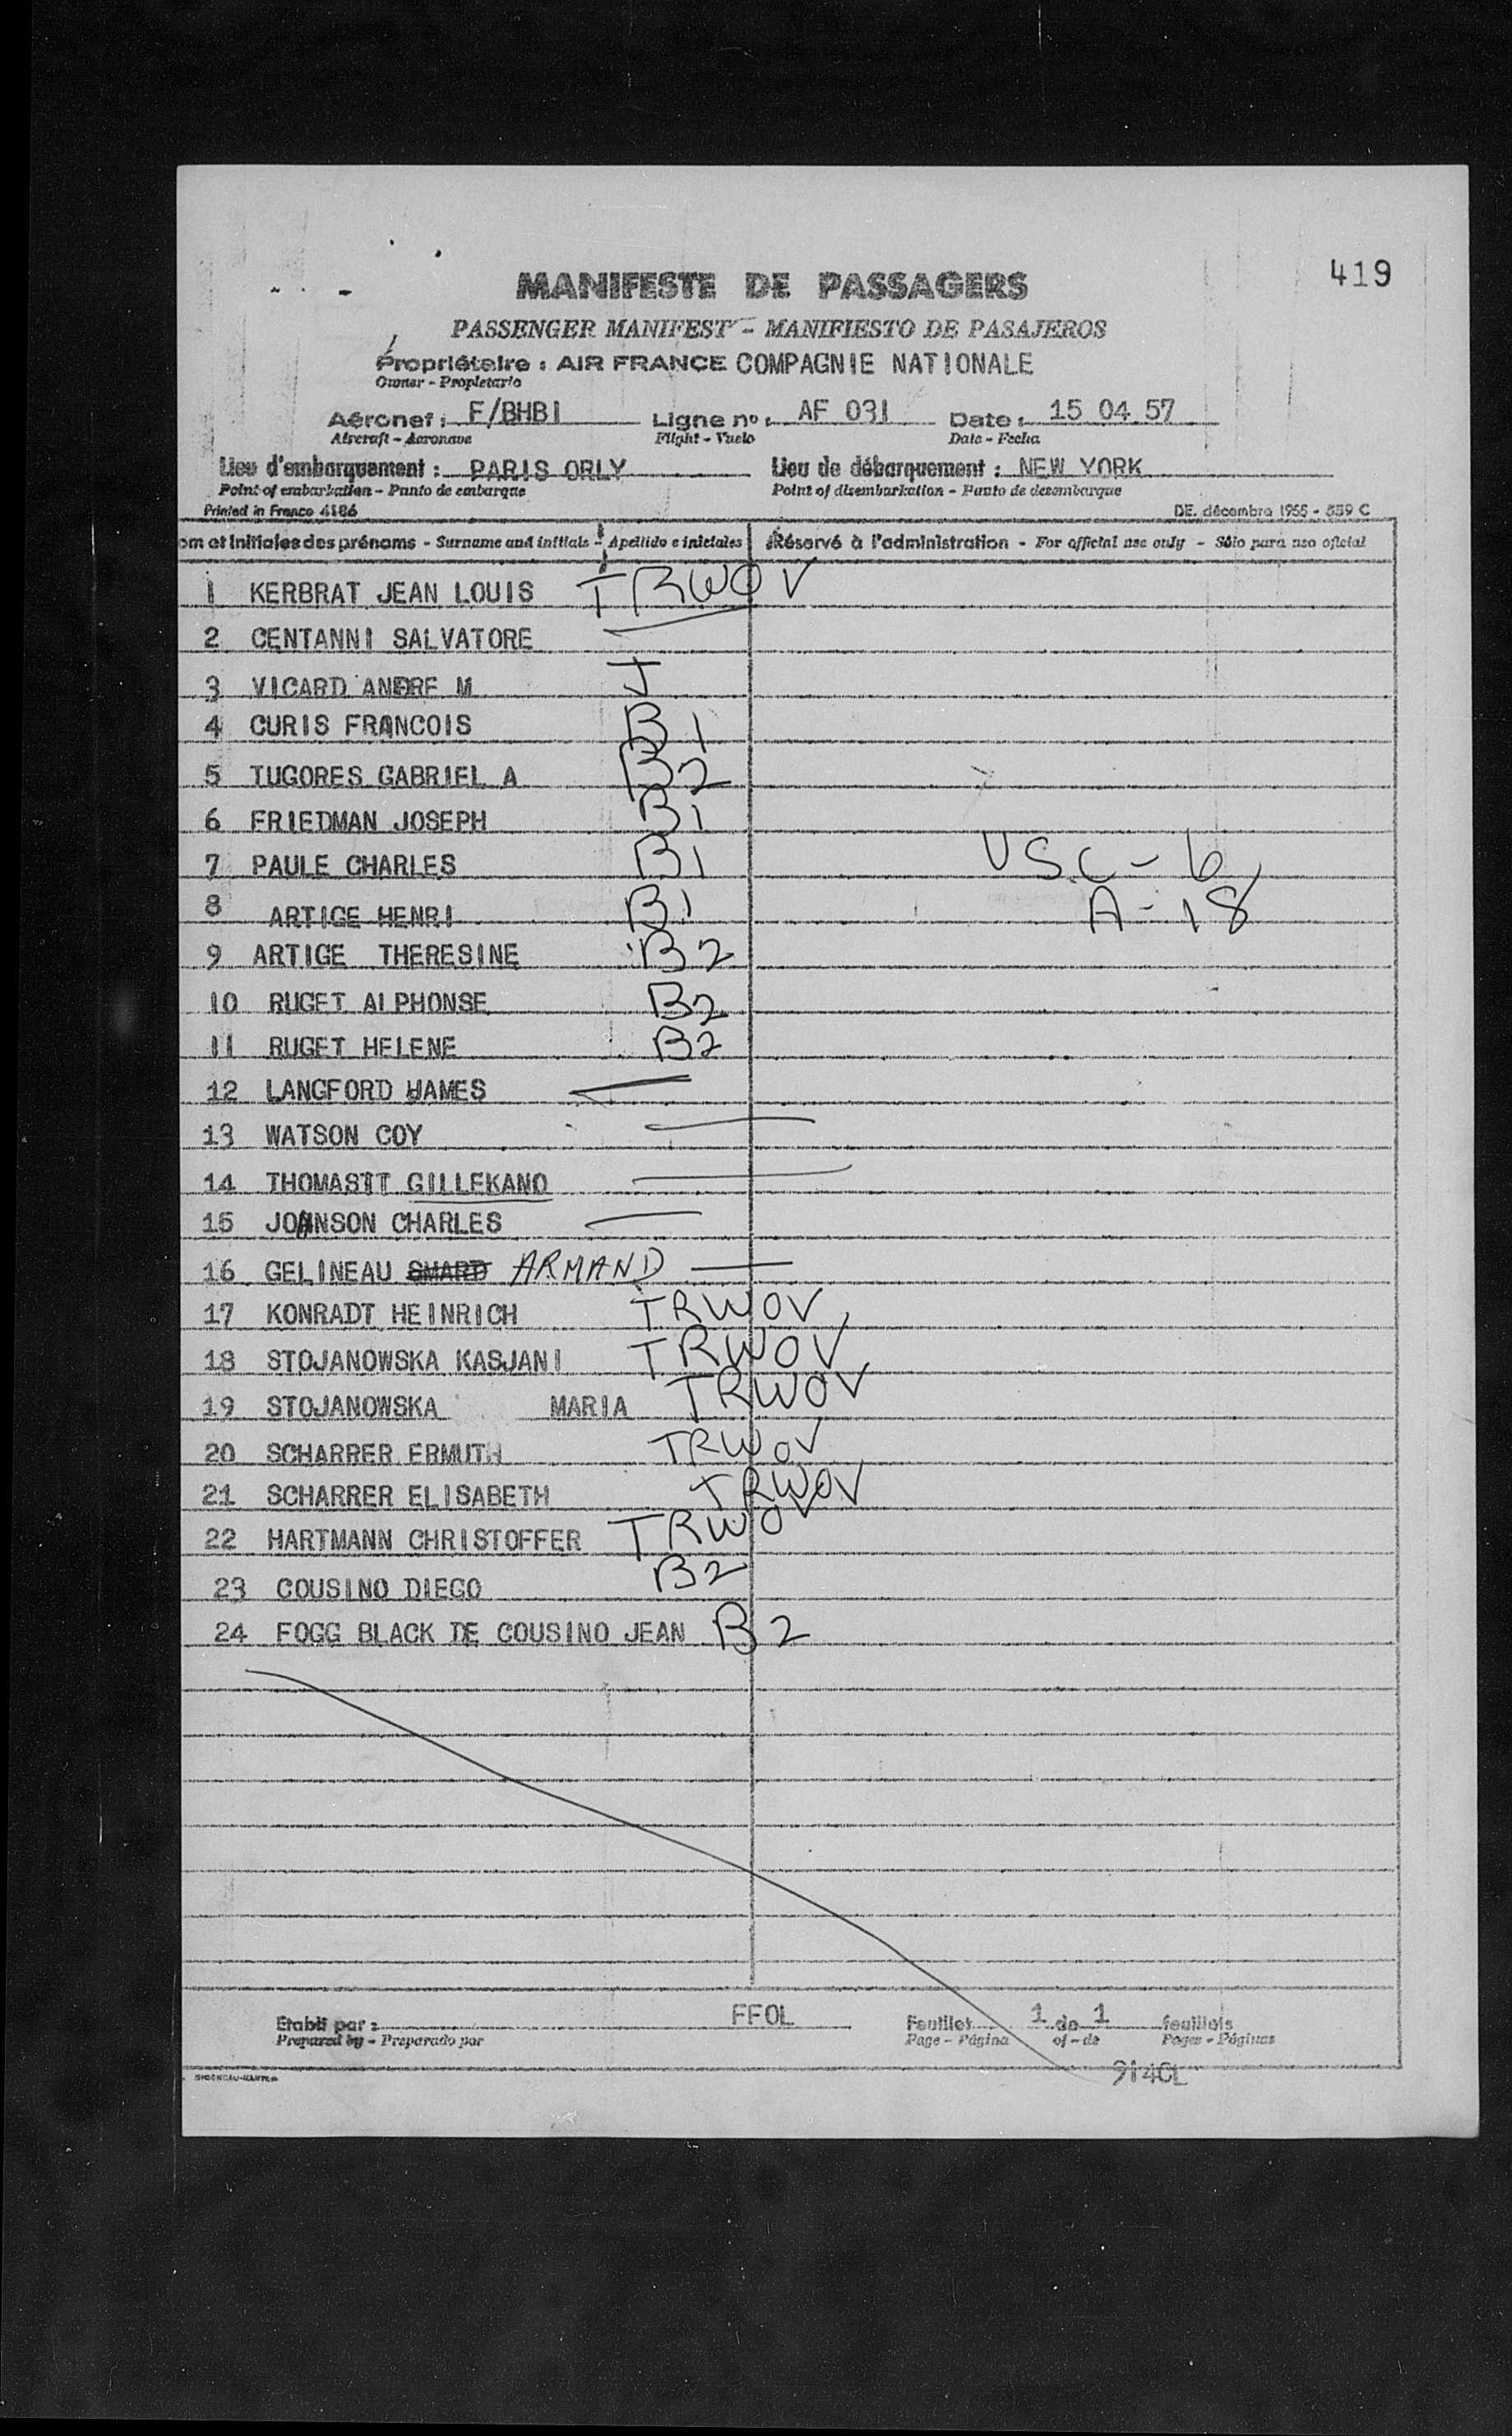 419
MANIFESTE DE PASSAGERS
PASSENGER MANIFEST - MANIFIESTO DE PASAJEROS
Propriétaire : AIR FRANCE COMPAGNIE NATIONALE
Owner - Propietario
Aéronef : F/BHBI Ligne nº : AF 031 Date : 15 04 57
Aircraft - Aeronave Flight - Vuelo Date - Fecha
Lieu d'embarquement : PARIS ORLY Lieu de débarquement : NEW YORK
Point of embarkation - Punto de embarque Point of disembarkation - Punto de desembarque
Printed in France 4186 DE. décembre 1955 - 559 C
om et initiales des prénoms - Surname and initials - Apellido e iniciales Réservé à l'administration - For official use only - Sólo para uso oficial
1 KERBRAT JEAN LOUIS TRWOV
2 CENTANNI SALVATORE
3 VICARD ANDRE M J
4 CURIS FRANCOIS B1
5 TUGORES GABRIEL A B2
6 FRIEDMAN JOSEPH B1
7 PAULE CHARLES B1 USC - 6
8 ARTIGE HENRI B1 A - 18
9 ARTIGE THERESINE B2
10 RUGET ALPHONSE B2
11 RUGET HELENE B2
12 LANGFORD JAMES
13 WATSON COY
14 THOMASTT GILLEKANO
15 JOHNSON CHARLES
16 GELINEAU ARMAND
17 KONRADT HEINRICH TRWOV
18 STOJANOWSKA KASJANI TRWOV
19 STOJANOWSKA MARIA TRWOV
20 SCHARRER ERMUTH TRWOV
21 SCHARRER ELISABETH TRWOV
22 HARTMANN CHRISTOFFER TRWOV
23 COUSINO DIEGO B2
24 FOGG BLACK DE COUSINO JEAN B2
Etabli par : FFOL Feuillet 1 de 1 feuillets
Prepared by - Preparado por Page - Página of - de Pages - Páginas
914CL